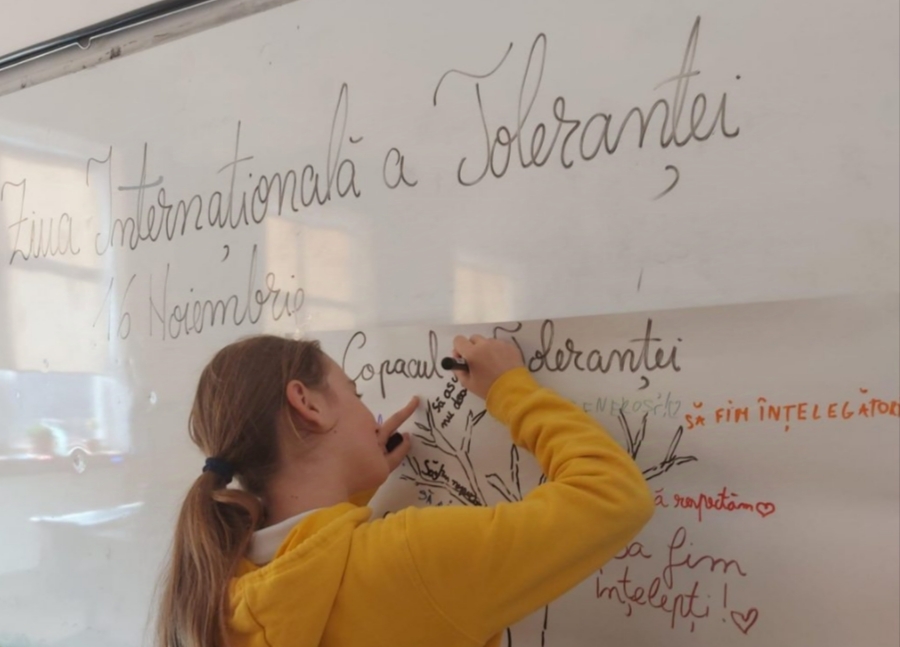 Ziua Internațională a Toleranței
16 Noiembrie
Copacul Toleranței
Să
nu doar
SĂ FIM ÎNȚELEGĂTORI
Să fim
respectăm
Sa fim
înțelepți!